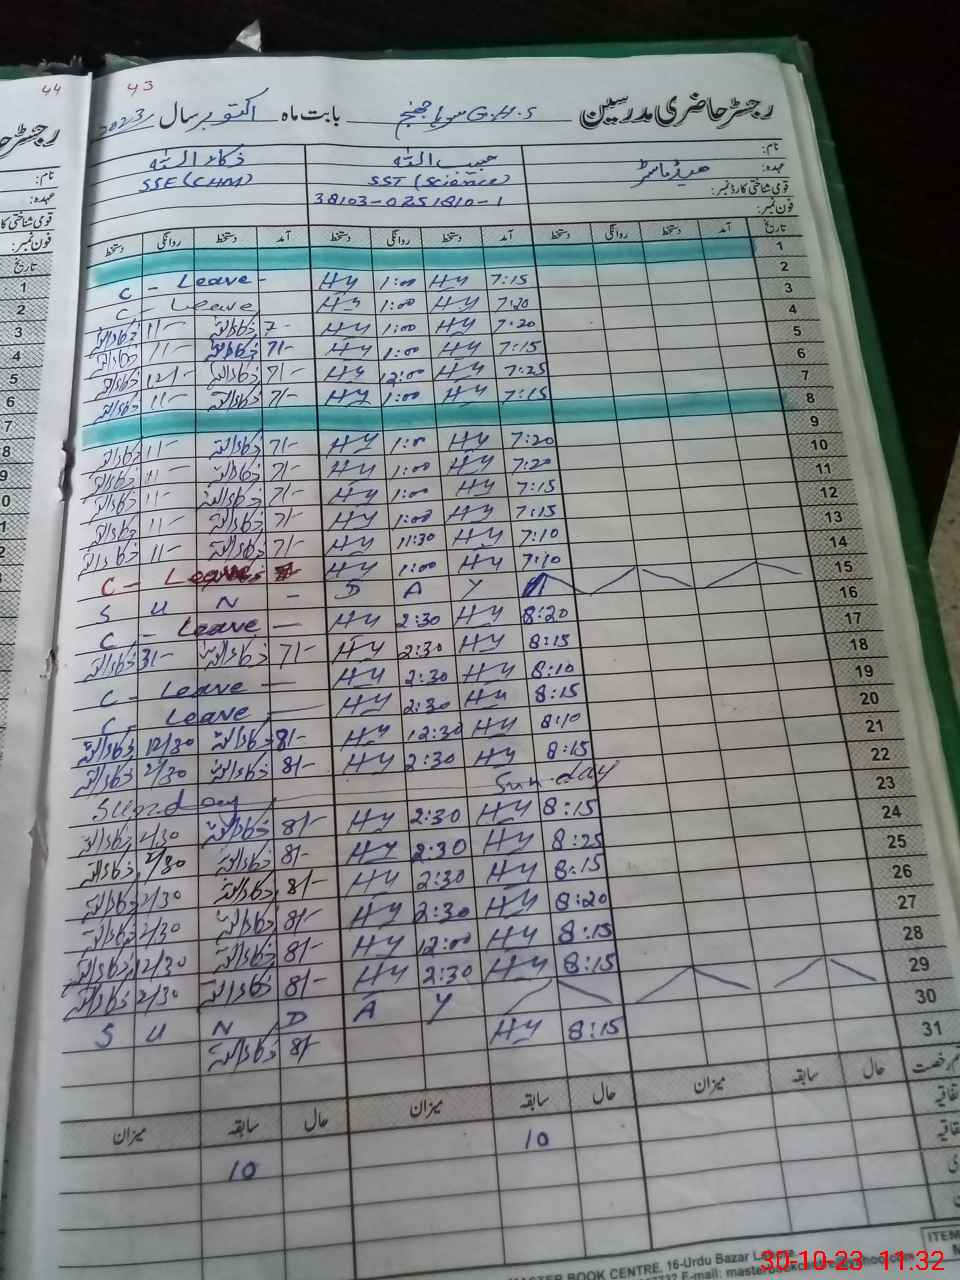 44
43
رجسٹر حاضری مدرسین G.H.S بابت ماہ اکتوبر سال 2023
نام: حبیب اللہ ذکاء اللہ
عہدہ: ہیڈ ماسٹر SST (Science) SSE (CHM)
قومی شناختی کارڈ نمبر: 38103-0251810-1
فون نمبر:
تاریخ آمد دستخط روانگی دستخط آمد دستخط روانگی دستخط آمد دستخط روانگی دستخط
1
2 7:15 Hy 1:00 Hy C - Leave -
3 7:20 Hy 1:00 Hy C - Leave
4 7:20 Hy 1:00 Hy 7- ذکاءاللہ 11- ذکاءاللہ
5 7:15 Hy 1:00 Hy 7/- ذکاءاللہ 11- ذکاءاللہ
6 7:25 Hy 12:00 Hy 7/- ذکاءاللہ 12/- ذکاءاللہ
7 7:15 Hy 1:00 Hy 7/- ذکاءاللہ 11- ذکاءاللہ
8
9 7:20 Hy 1:00 Hy 7/- ذکاءاللہ 11- ذکاءاللہ
10 7:20 Hy 1:00 Hy 7/- ذکاءاللہ 11- ذکاءاللہ
11 7:15 Hy 1:00 Hy 7/- ذکاءاللہ 11- ذکاءاللہ
12 7:15 Hy 1:00 Hy 7/- ذکاءاللہ 11- ذکاءاللہ
13 7:10 Hy 11:30 Hy 7/- ذکاءاللہ 11- ذکاءاللہ
14 7:10 Hy 1:00 Hy C - Leave
15 S U N - D A Y
16 8:20 Hy 2:30 Hy C - Leave -
17 8:15 Hy 2:30 Hy 7/- ذکاءاللہ 3/- ذکاءاللہ
18 8:10 Hy 2:30 Hy C - Leave -
19 8:15 Hy 2:30 Hy C - Leave -
20 8:10 Hy 12:30 Hy 8/- ذکاءاللہ 12/30 ذکاءاللہ
21 8:15 Hy 2:30 Hy 8/- ذکاءاللہ 2/30 ذکاءاللہ
22 Sunday
23 8:15 Hy 2:30 Hy 8/- ذکاءاللہ 2/30 ذکاءاللہ
24 8:25 Hy 2:30 Hy 8/- ذکاءاللہ 2/30 ذکاءاللہ
25 8:15 Hy 2:30 Hy 8/- ذکاءاللہ 2/30 ذکاءاللہ
26 8:20 Hy 2:30 Hy 8/- ذکاءاللہ 2/30 ذکاءاللہ
27 8:15 Hy 12:00 Hy 8/- ذکاءاللہ 12/30 ذکاءاللہ
28 8:15 Hy 2:30 Hy 8/- ذکاءاللہ 2/30 ذکاءاللہ
29 S U N D A Y
30 8:15 Hy 8/- ذکاءاللہ
31
حال سابقہ میزان حال سابقہ میزان حال سابقہ میزان
10 10
MASTER BOOK CENTRE, 16-Urdu Bazar
E-mail:
30-10-23 11:32